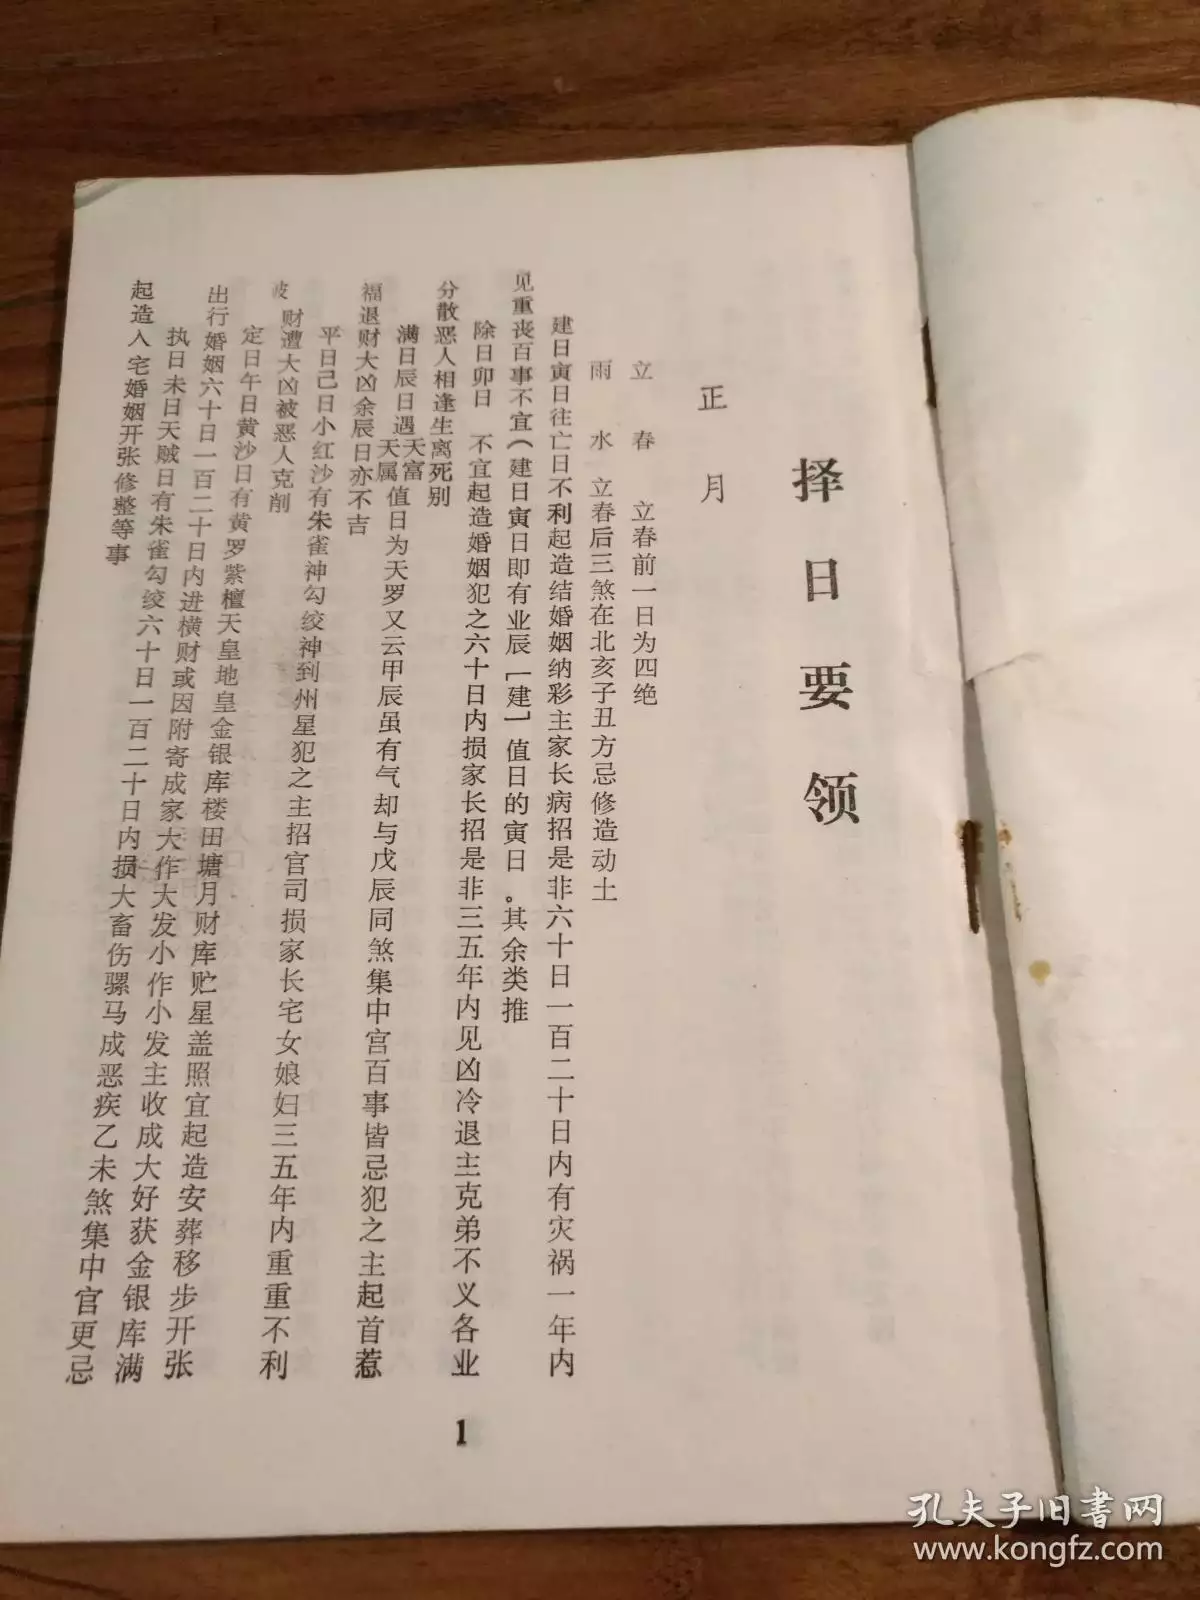 择日要领
正月
立春 立春前一日为四绝
雨水 立春后三煞在北亥子丑方忌修造动土
建日寅日往亡日不利起造结婚姻纳彩主家长病招是非六十日一百二十日内有灾祸一年内
见重丧百事不宜（建日寅日即有业辰［建］值日的寅日。其余类推
除日卯日 不宜起造婚姻犯之六十日内损家长招是非三五年内见凶冷退主克弟不义各业
分散恶人相逢生离死别
满日辰日遇天富天属值日为天罗又云甲辰虽有气却与戊辰同煞集中宫百事皆忌犯之主起首惹
福退财大凶余辰日亦不吉
平日己日小红沙有朱雀神勾绞神到州星犯之主招官司损家长宅女娘妇三五年内重重不利
财遭大凶被恶人克削
定日午日黄沙日有黄罗紫檀天皇地皇金银库楼田塘月财库贮星盖照宜起造安葬移步开张
出行婚姻六十日一百二十日内进横财或因附寄成家大作大发小作小发主收成大好获金银库满
执日未日天贼日有朱雀勾绞六十日一百二十日内损大畜伤骡马成恶疾乙未煞集中官更忌
起造入宅婚姻开张修整等事
1
孔夫子旧書网
www.kongfz.com